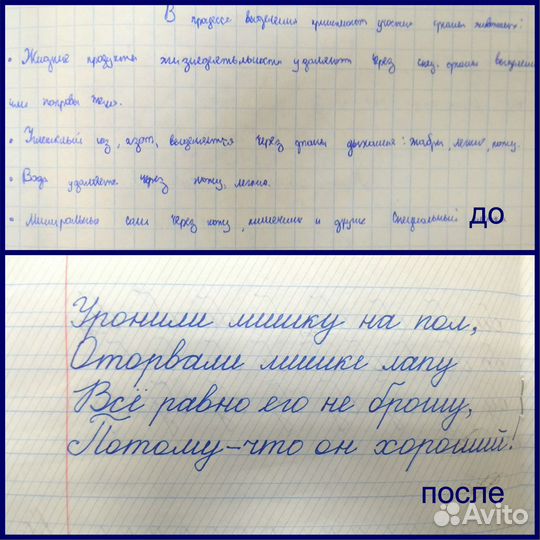 В процессе выделения принимают участие органы животных:
• Жидкие продукты жизнедеятельности удаляют через спец. органы выделения
или покровы тела.
• Углекислый газ, азот, выделяется через органы дыхания: жабры, легкие, кожу.
• Вода удаляется через кожу, легкие.
• Минеральные соли через кожу, кишечник и другие специальный
до
Уронили мишку на пол,
Оторвали мишке лапу
Всё равно его не брошу,
Потому-что он хороший!
после
Avito